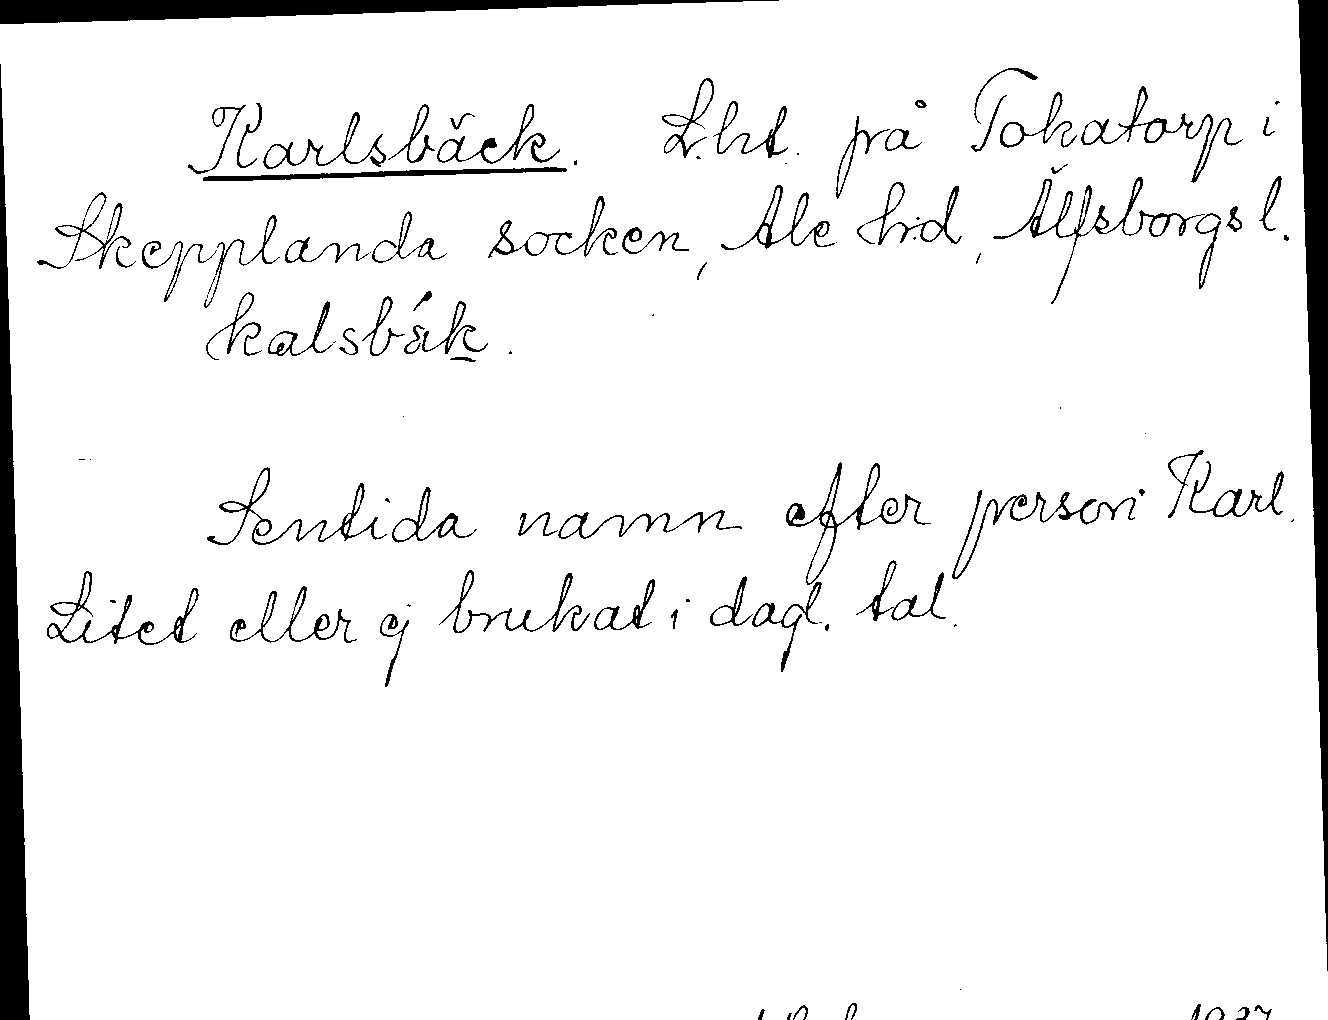 Karlsbäck. L.ht. på Tokatorp i
Skepplanda socken, Ale hd, Älfsborgs l.
kalsbäk.
Sentida namn efter person Karl.
Litet eller ej brukat i dagl. tal.
1937